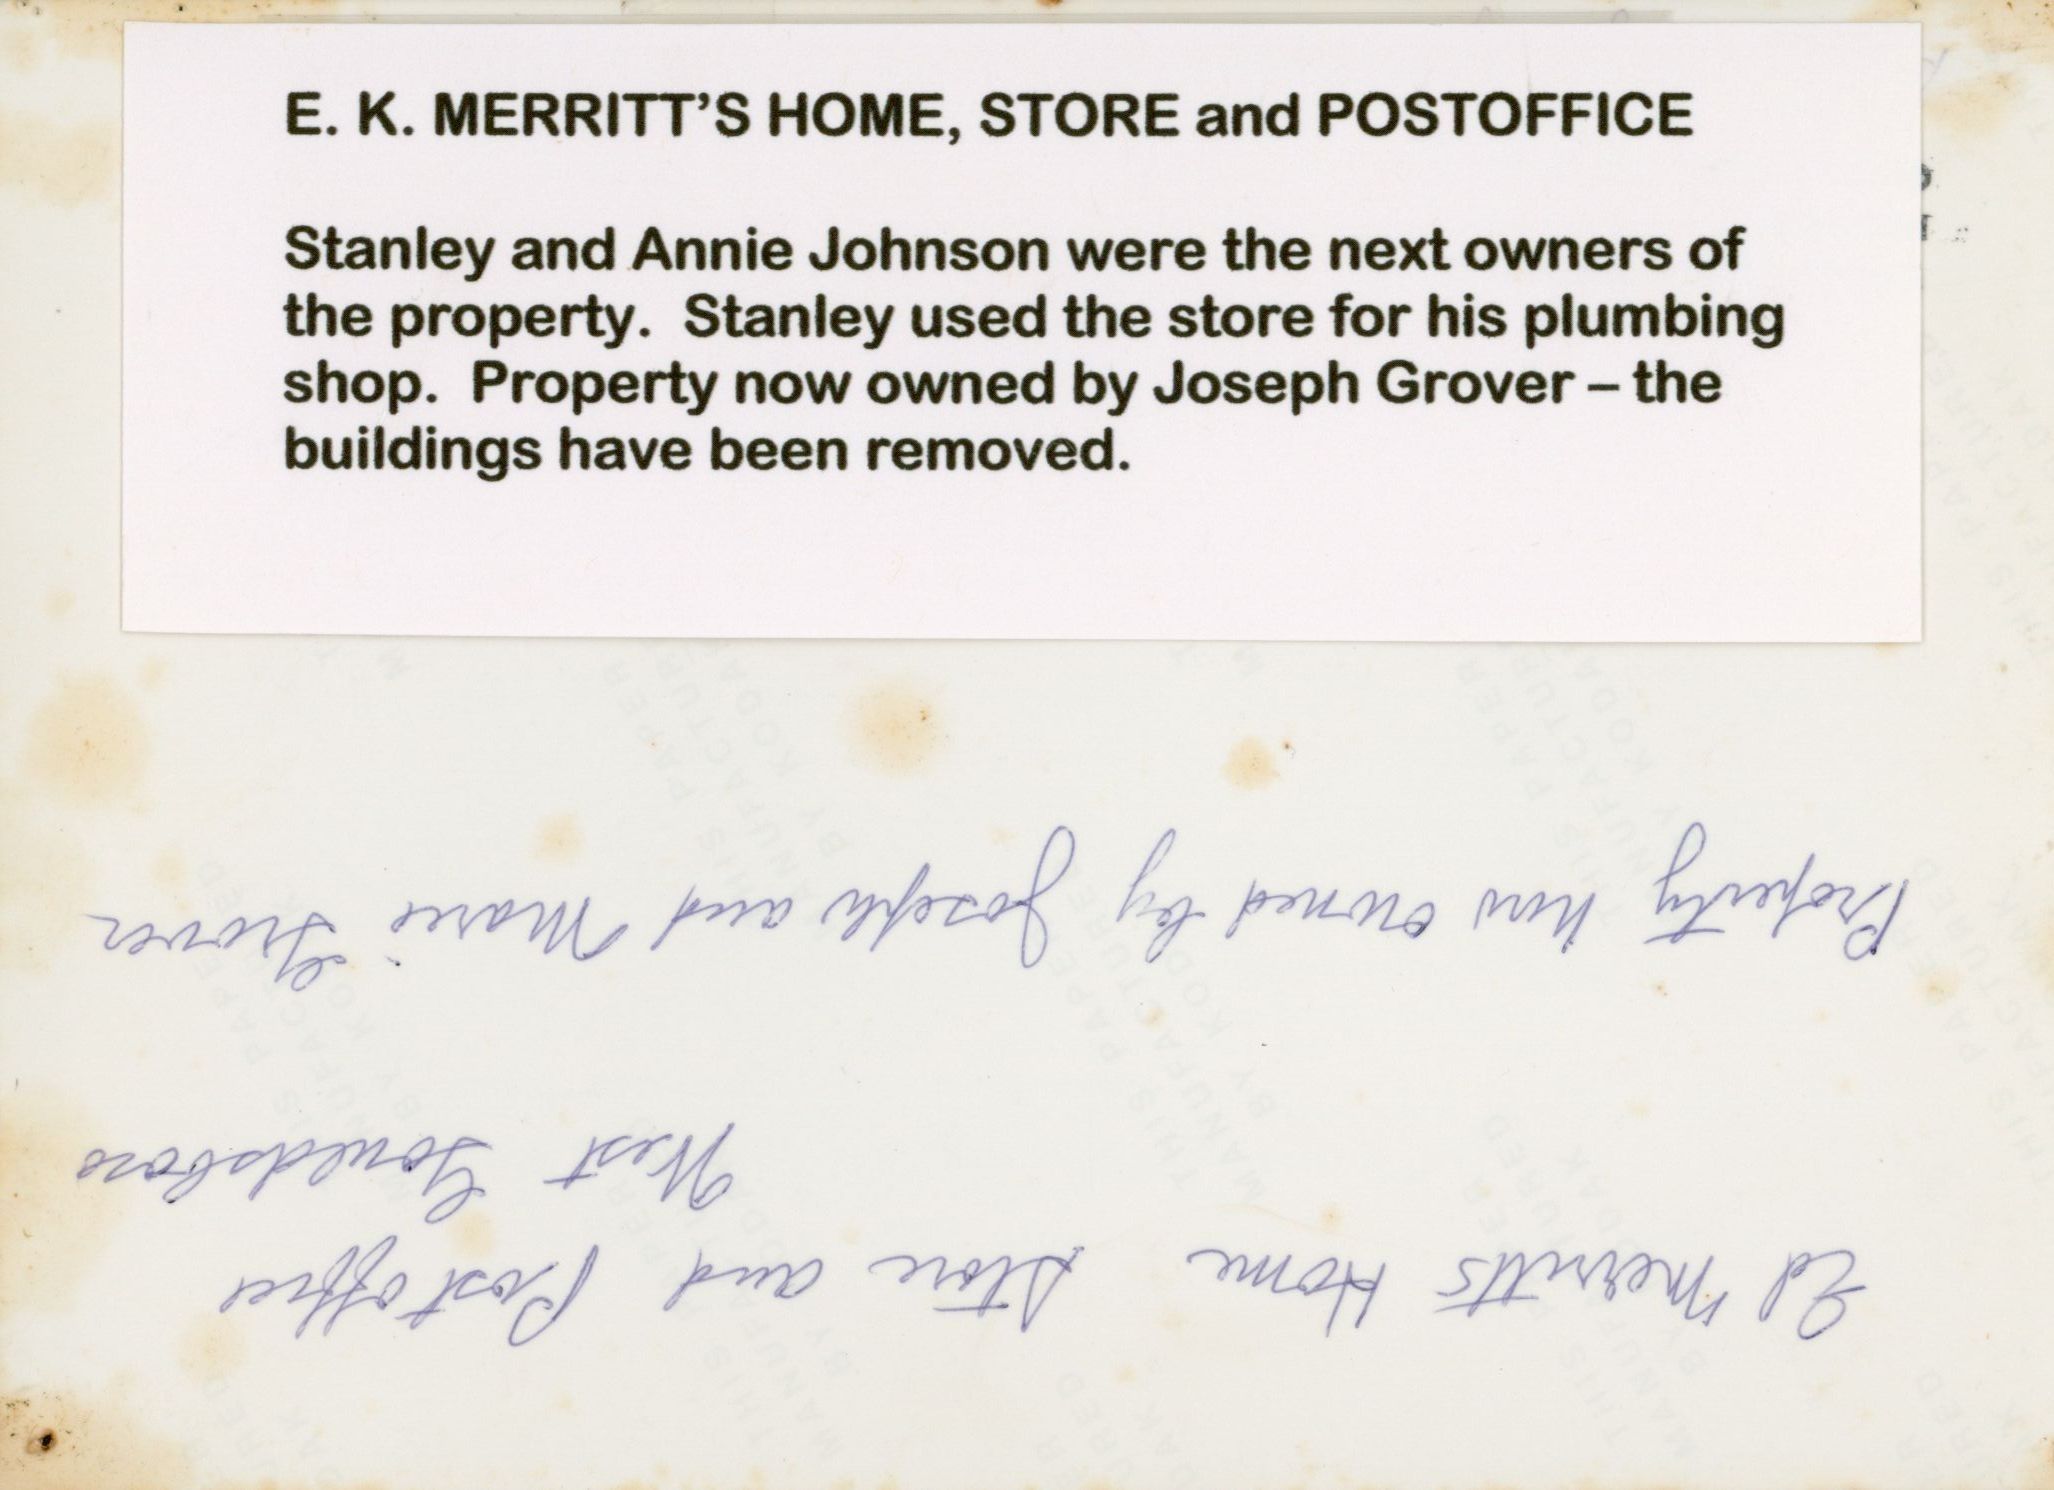 E. K. MERRITT'S HOME, STORE and POSTOFFICE
Stanley and Annie Johnson were the next owners of
the property. Stanley used the store for his plumbing
shop. Property now owned by Joseph Grover – the
buildings have been removed.
Ed Merritts Home Store and Post office
West Gouldsboro
Property now owned by Joseph and Marie Grover
THIS PAPER
MANUFACTURED
BY KODAK